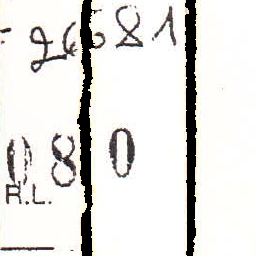 26581
080
R.L.